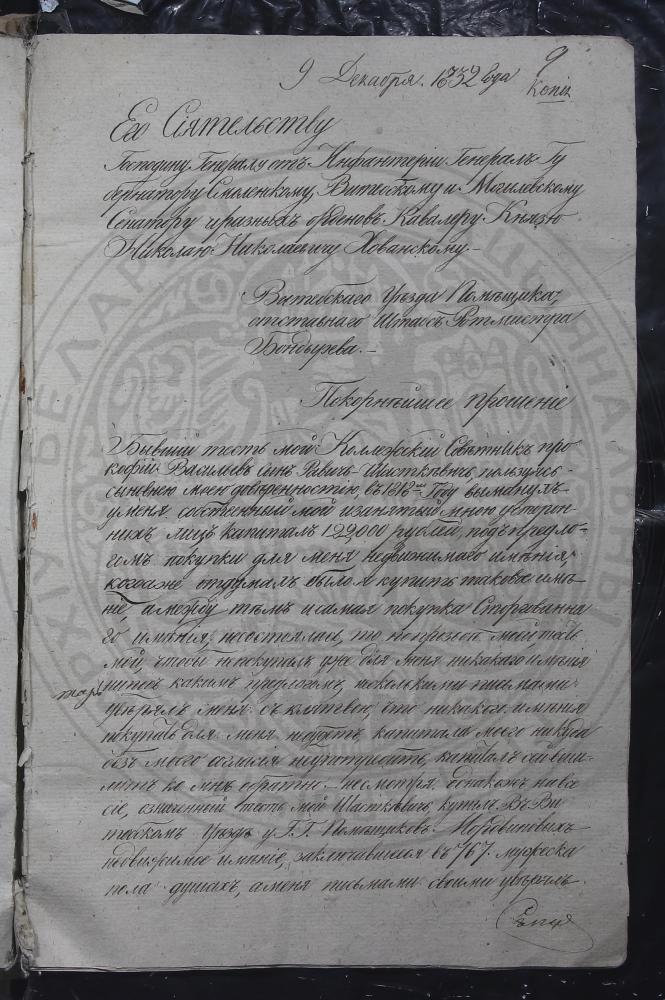 9 Декабря. 1832 года
9
Копія
Его Сіятельству
Господину Генералу отъ Инфантеріи Генералъ Гу
бернатору Смоленскому, Витебскому и Могилевскому
Сенатору и разныхъ орденовъ Кавалеру Князю
Николаю Николаевичу Хованскому.-
Витебскаго Уѣзда Помѣщика,
отставнаго Штабсъ Ротмистра
Бондырева.-
Покорнѣйшее прошеніе
Бывшій тесть мой Коллежскій Совѣтникъ Про
кофій Васильевъ сынъ Равичь-Шасткевичь, пользуясь
сыновнею моею довѣренностію, въ 1812мъ Году выманулъ
у меня собственный мой и занятый мною у сторон
нихъ лицъ капиталъ 129,000 рублей, подъ предло-
гомъ покупки для меня недвижимаго имѣнія,
когда же отдумалъ было я купить таковое имѣ-
ніе, а между тѣмъ и самая покупка
го имѣнія, несостоялась, то
мой, чтобъ непокупалъ уже для меня никакого имѣнія
ни подъ какимъ предлогомъ, нѣсколькими письмами
тожъ
увѣрялъ меня съ клятвою, что никакого имѣнія
покупать для меня небудетъ, капитала моего никуда
безъ моего согласія неупотребитъ, капиталъ сей выш-
литъ ко мнѣ обратно - несмотря однакожъ на все
сіе, означенный тесть мой Шаткевичь, купилъ въ Ви
тебскомъ Уѣздѣ у Г.Г. Помѣщиковъ
недвижимое имѣніе, заключавшееся въ 767. мужеска
пола душахъ, а меня письмами своими увѣрилъ